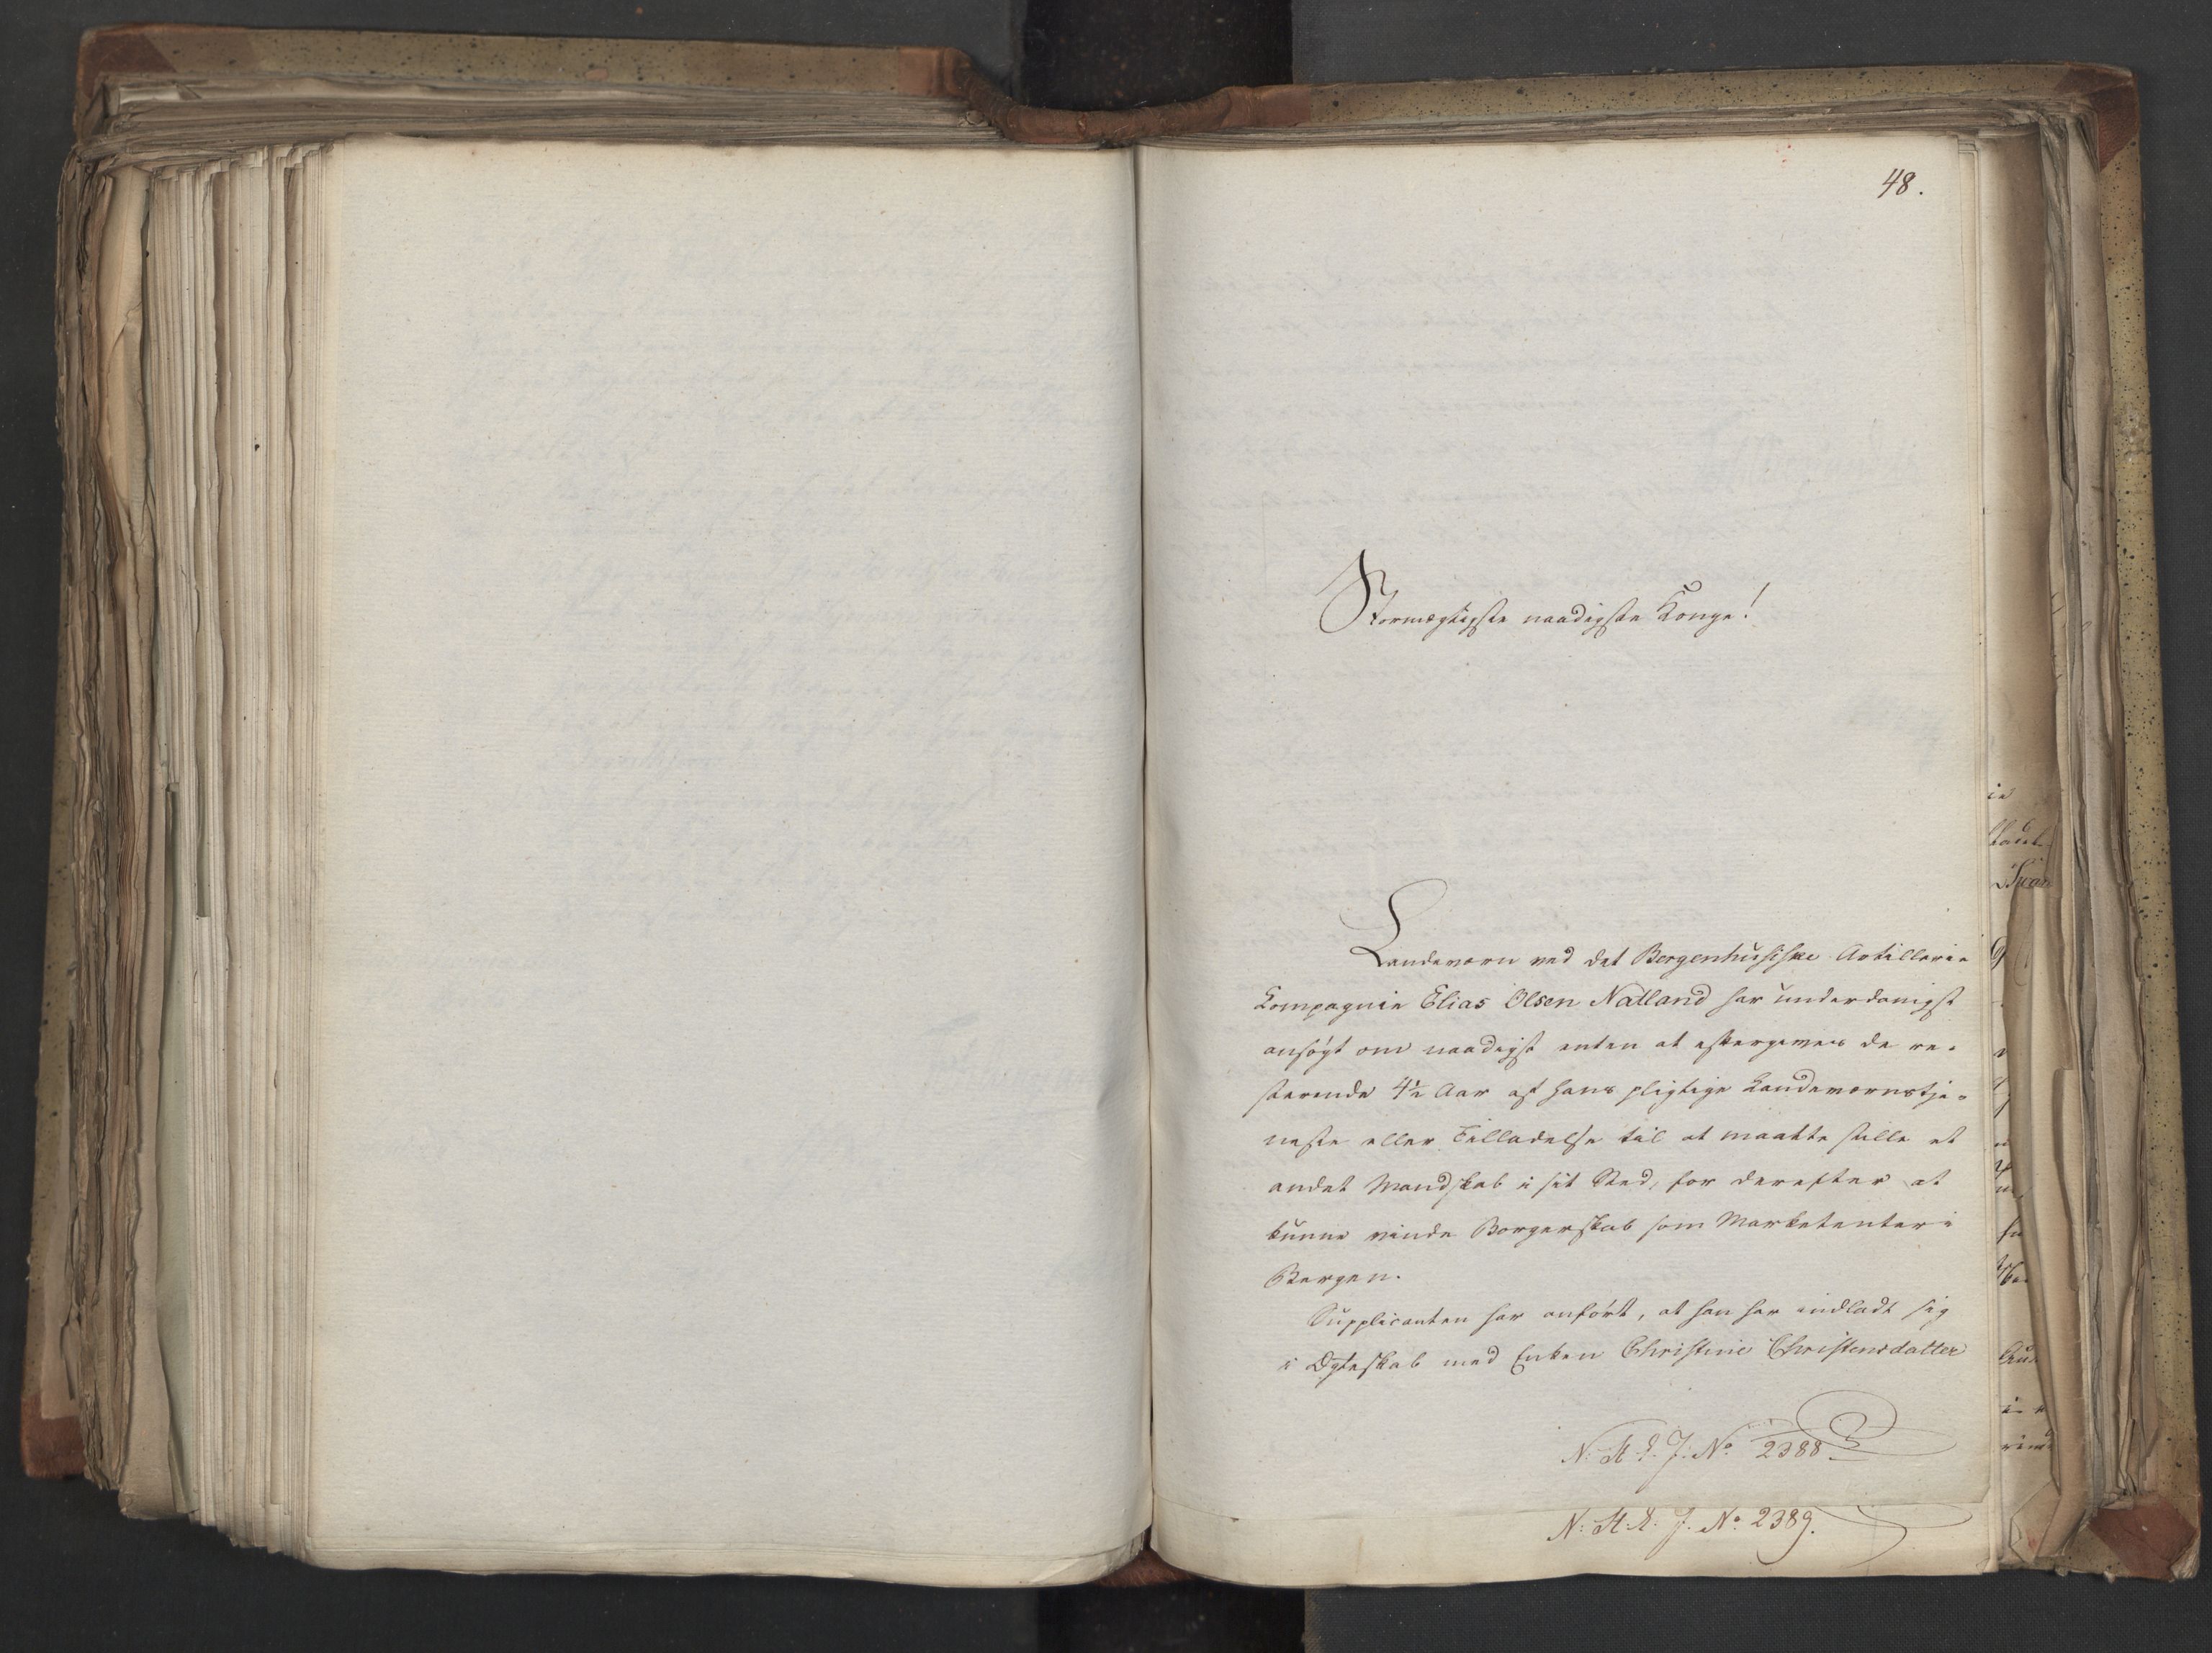 48.
Stormægtigste naadigste Konge!
Landeværn ved det Bergenhusiske Artillerie
Kompagnie Elias Olsen Natland har underdanigst
ansøgt om naadigst enten at eftergives de re-
sterende 4½ Aar af hans pligtige Landeværnstje-
neste eller Tilladelse til at maatte stille et
andet Mandskab i sit Sted, for derefter at
kunne vinde Borgerskab som Marketenter i
Bergen.
Supplicanten har anført, at han har indladt sig
i Ægteskab med Enken Christine Christensdatter
N: St. E. J. No 2388
N: St. E. J. No 2389.